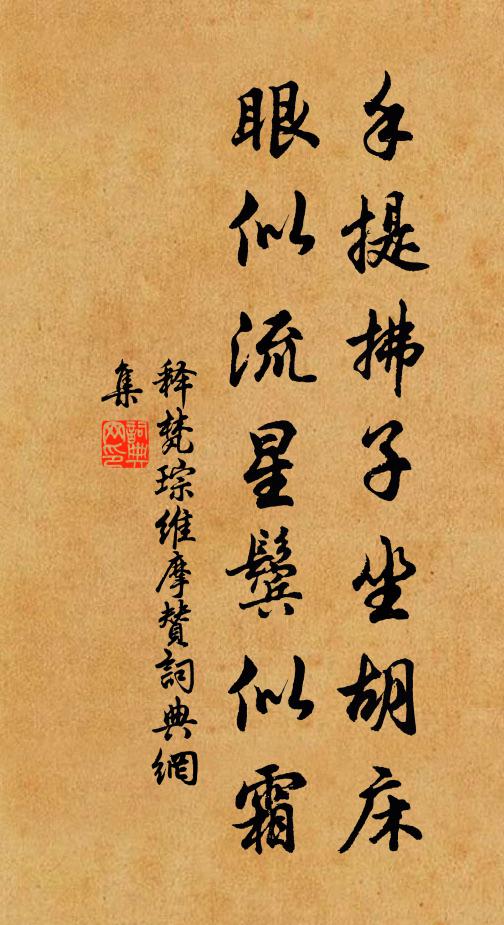 手提拂子坐胡床
眼似流星鬓似霜
释梵琮维摩赞詞典網
集
詞典网印